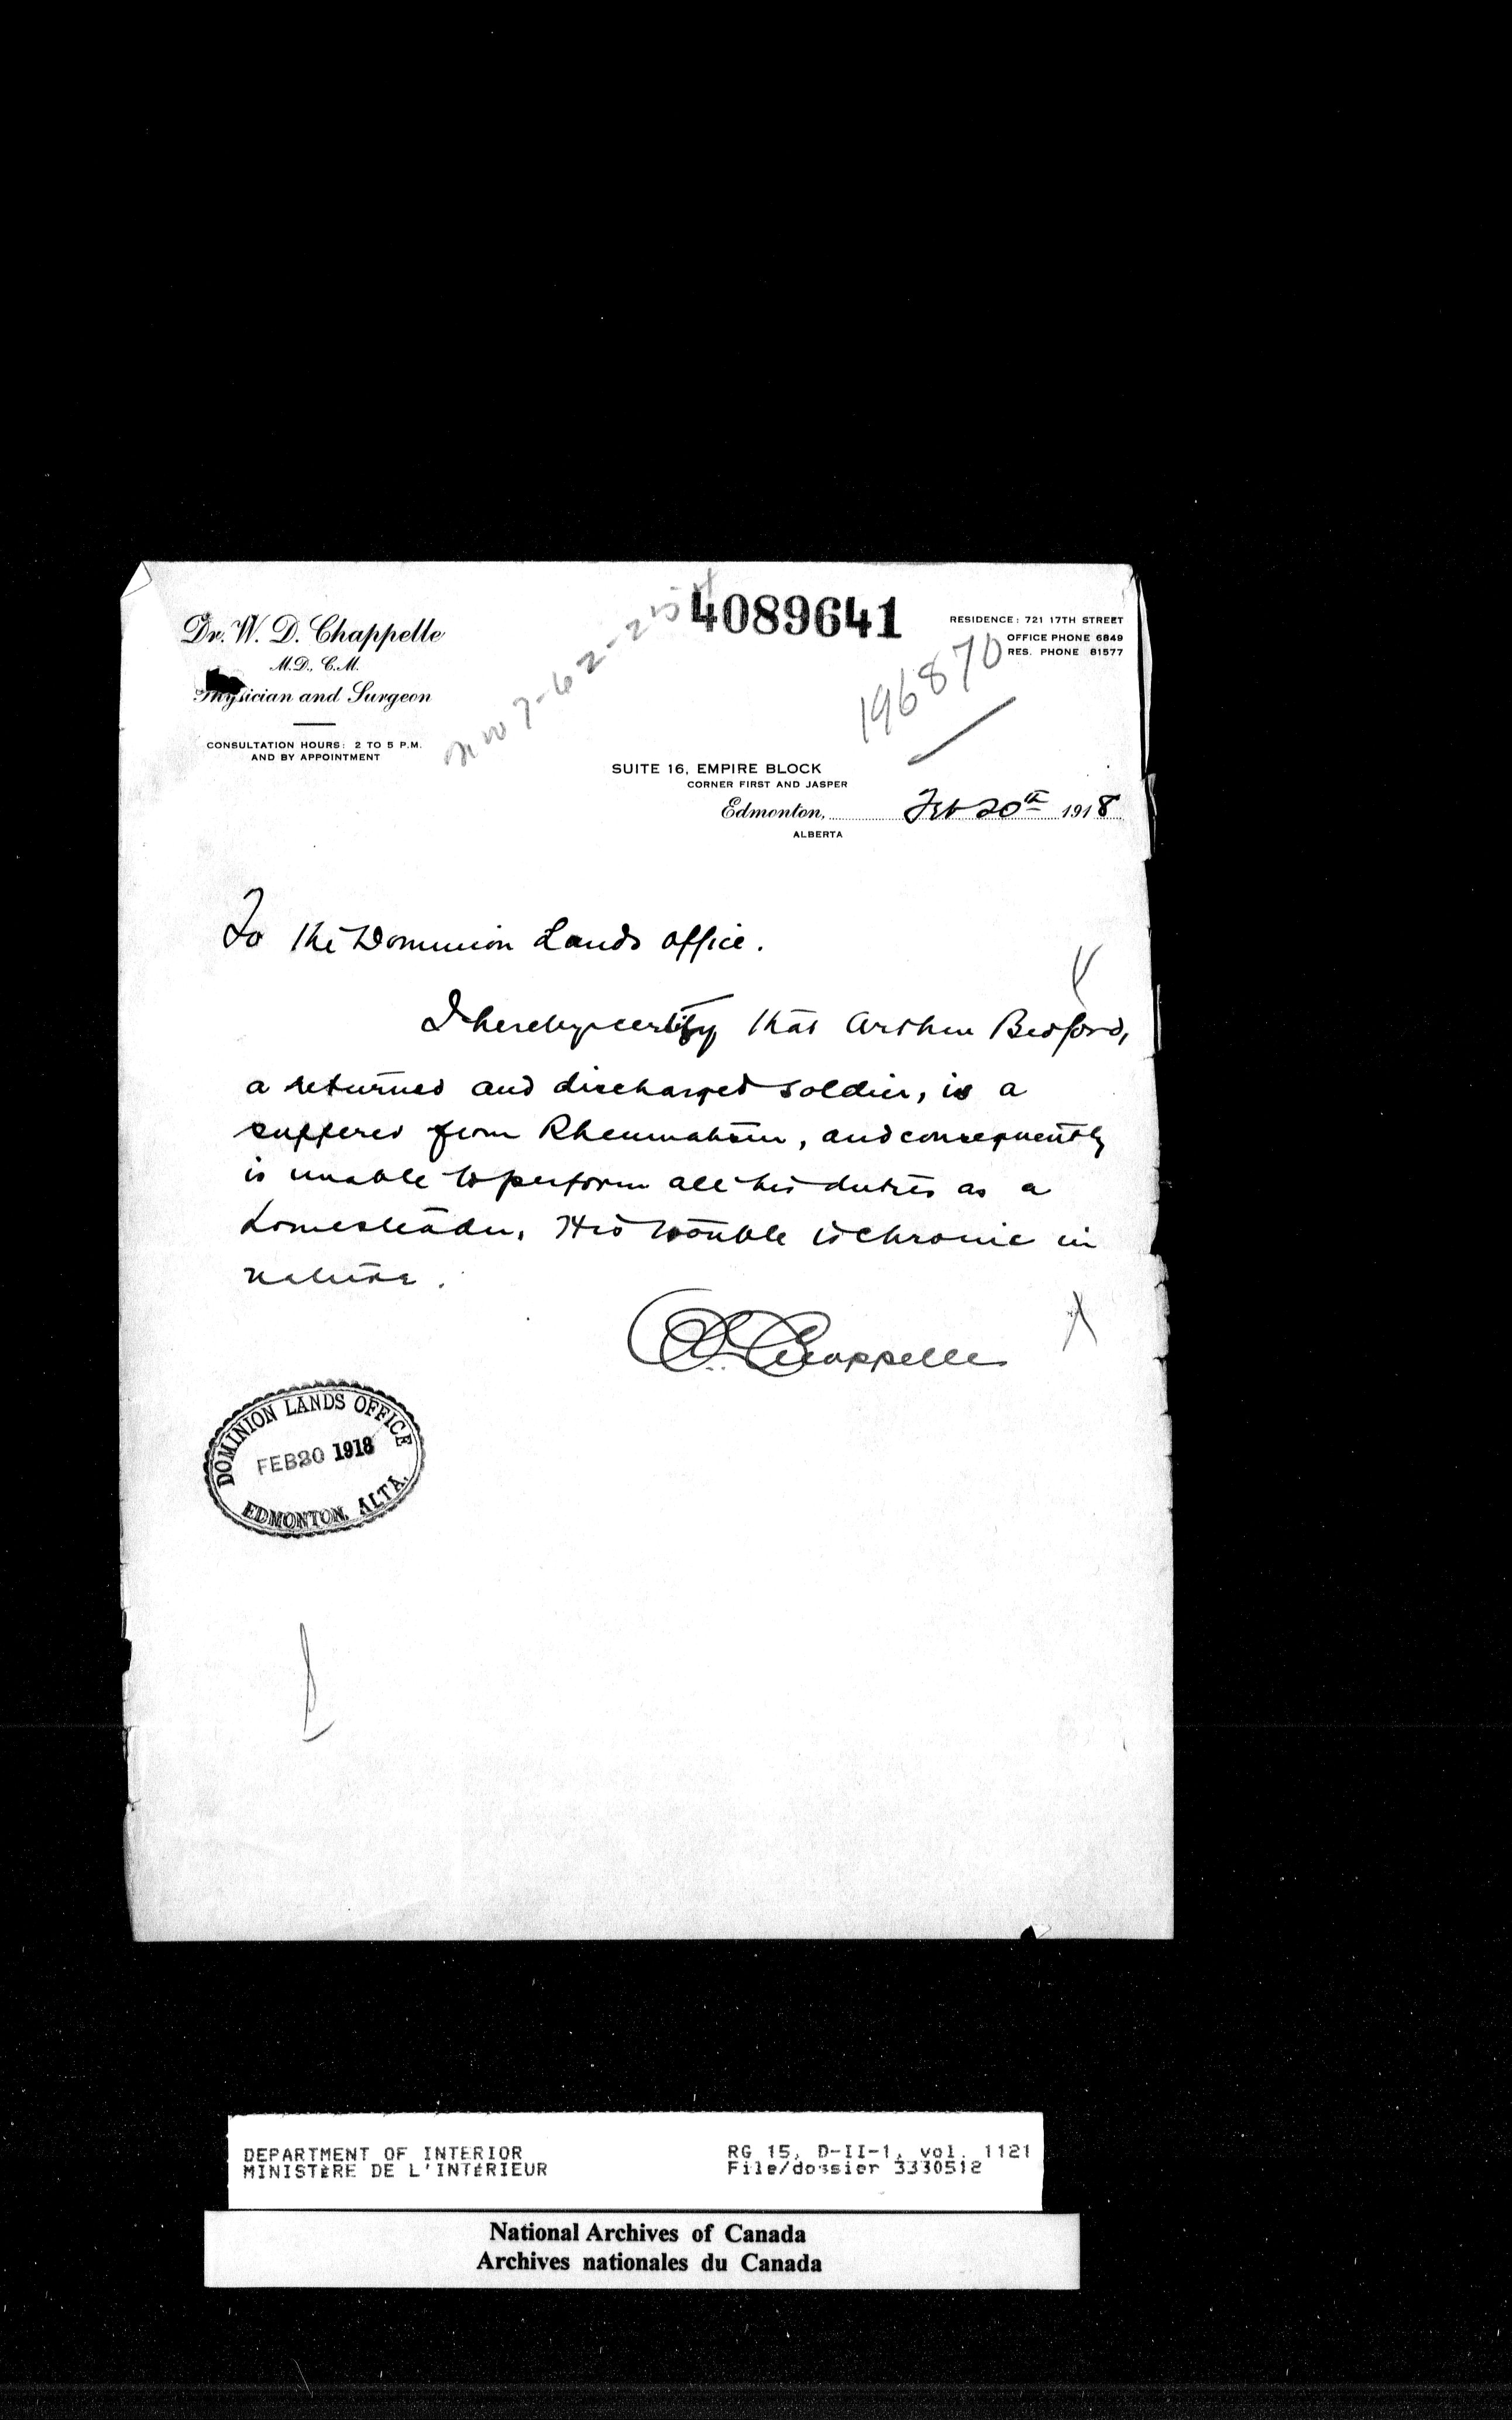 Dr. W. D. Chappelle
M.D., C.M.
Physician and Surgeon
CONSULTATION HOURS: 2 TO 5 P.M.
AND BY APPOINTMENT
4089641
RESIDENCE: 721 17TH STREET
OFFICE PHONE 6849
RES. PHONE 81577
196870
SUITE 16, EMPIRE BLOCK
CORNER FIRST AND JASPER
Edmonton, Feb 20th 1918
ALBERTA
To the Dominion Lands Office.
I hereby certify that Arthur Bedford,
a returned and discharged soldier, is a
sufferer from Rheumatism, and consequently
is unable to perform all his duties as a
homesteader. His trouble is chronic in
nature.
Chappelle
DOMINION LANDS OFFICE
FEB 20 1918
EDMONTON, ALTA.
DEPARTMENT OF INTERIOR
MINISTÈRE DE L'INTÉRIEUR
RG 15, D-II-1, vol. 1121
File/dossier 3330512
National Archives of Canada
Archives nationales du Canada